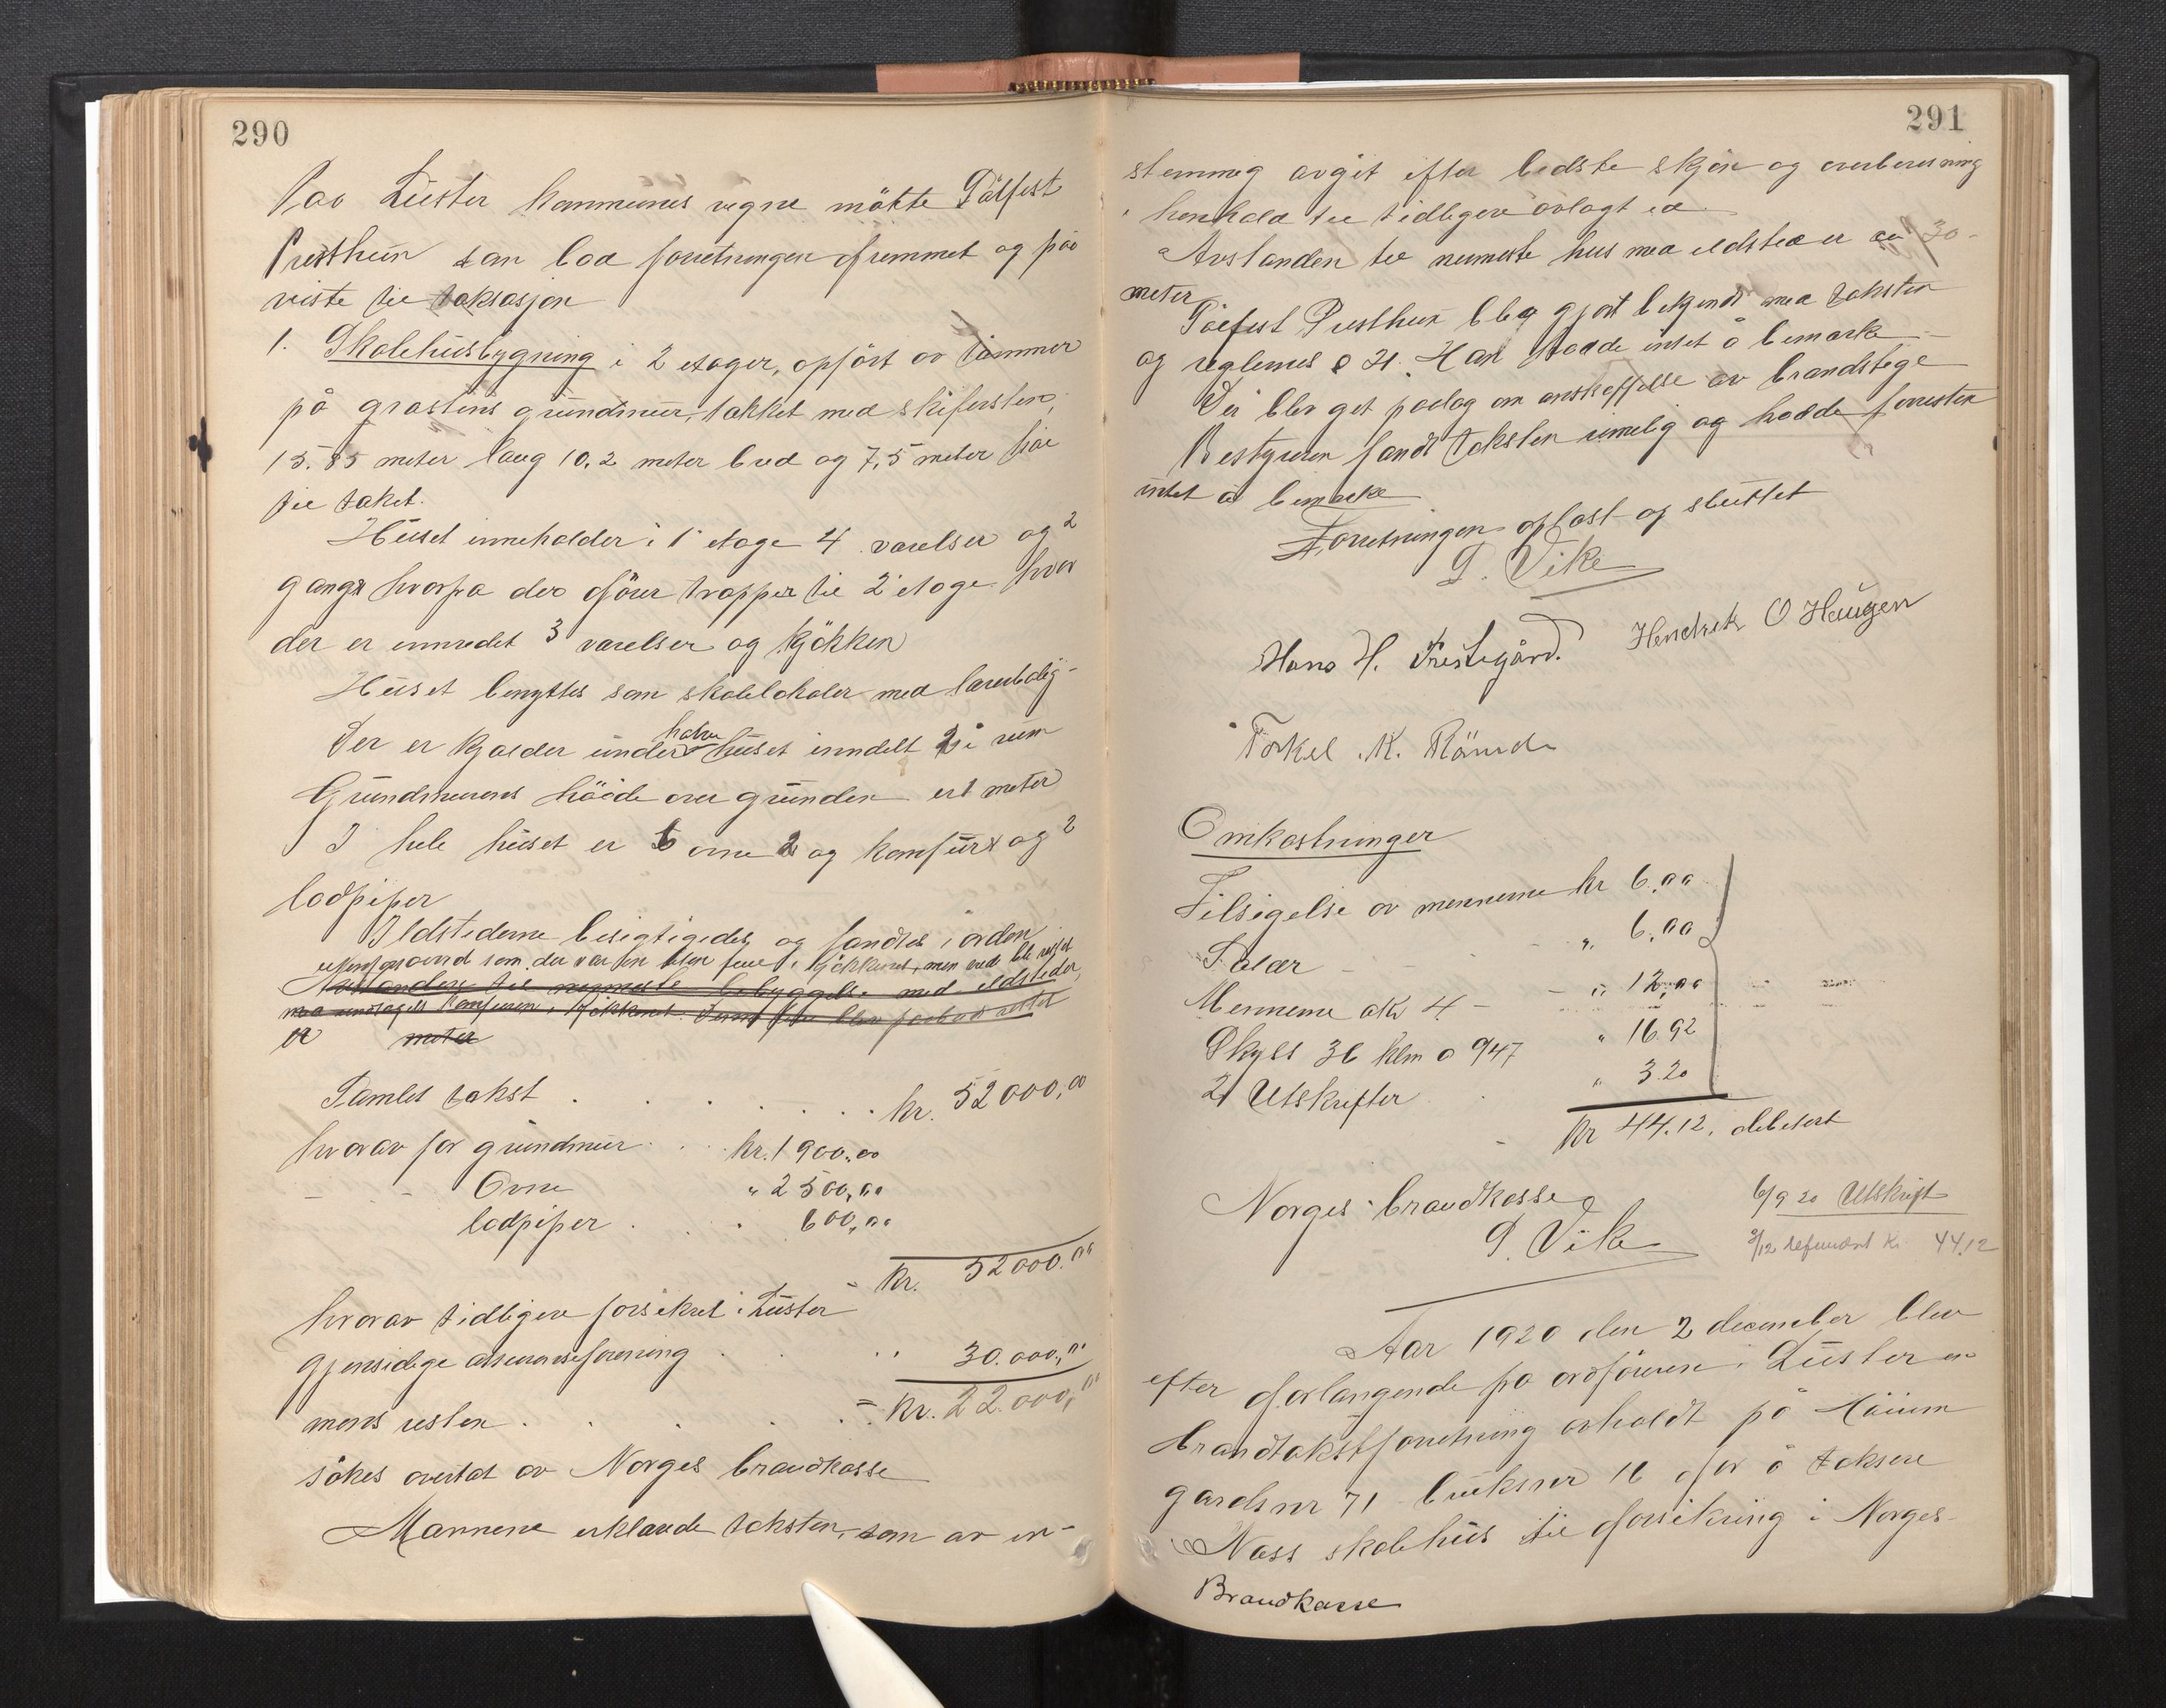 290
Paa Luster kommunes vegne mökte Pålfest
Presthun som bad forretningen fremmet og paa
viste til taksasjon
1. Skolehusbygning i 2 etager, opfört av tömmer
på gråstens grundmur, takket med skifersten,
15.85 meter lang 10,2 meter bred og 7,5 meter höi
til taket.
Huset inneholder i 1 etage 4 værelser og 2
gange hvorfra der förer trapper til 2 etage hvor
der er innredet 3 værelser og kjökken
Huset benyttes som skolelokaler med lærerbolig
Der er kjælder under halve huset inndelt i 2 rum
Grundmurens höide over grunden er 1 meter
I hele huset er 6 ovne og 2 komfur og 2
lodpiper
Ildstederne besigtigedes og fandtes i orden
Avstanden til nærmeste bebyggelse med ildsteder
er meter
Samlet takst . . . . . . . kr. 52000,00
hvorav for grundmur . . kr. 1900,00
- - Ovne " 2500,00
lodpiper . . 600,00
Kr. 52000.00
hvorav tidligere forsikret i Luster
gjensidige assuranseforening . . . 30.000,00
mens resten . . . . = Kr. 22.000,00
sökes overtat av Norges brandkasse
Mannene erklærede taksten, som av en-
291
stemmig avgit efter bedste skjön og overbevisning
i henhold til tidligere avlagt ed.
Avstanden til nærmeste hus med ildsted er ca 30
meter
Pålfest Presthun blev gjort bekjendt med taksten
og reglernes § 21. Han hadde intet å bemærke
Der blev get paalæg om anskaffelse av brandstige
Bestyreren fandt taksten rimelig og hadde forresten
intet å bemærke
Forretningen oplæst og sluttet
P. Vike
Hans H. Prestegård. Hendrik O Haugen
Torkel . K. Röneid
Omkostninger
Tilsigelse av mennerne kr 6,00
Salær - - - " 6,00
Mennerne a kr 4 - - " 12,00
Skyss 36 klm a 0,47 " 16.92
2 Utskrifter " 3.20
Kr 44.12. debetert
Norges brandkasse
P. Vike
6/9 20 Utskrift
3/12 refundert Kr 44.12
Aar 1920 den 2 december blev
efter forlangende fra ordföreren i Luster en
brandtakstforretning avholdt på Höium
gardsnr 71 bruksnr 16 for å taksere
Næss skolehus til forsikring i Norges
Brandkasse